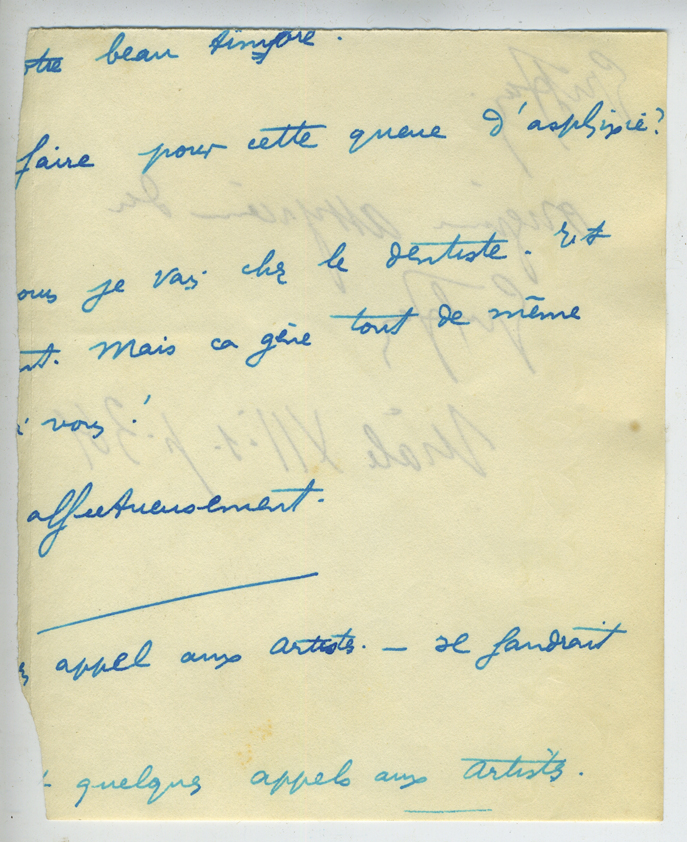 otre beau timbre.
faire pour cette queue d'asphixié?
ous je vais chez le dentiste. Et
nt. Mais ca gène tout de même
vous!
affectueusement.
appel aux artistes. — il faudrait
quelques appels aux artistes.